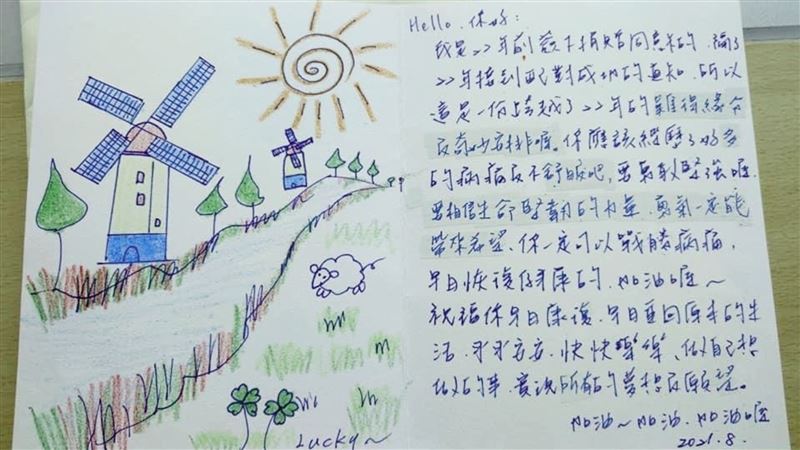 Hello, 你好:
我是22年前簽下捐贈同意書的,隔了
22年接到配對成功的通知,所以
這是一份橫跨了22年的難得緣份
及奇妙安排喔。你應該經歷了好多
的病痛及不舒服吧,要勇敢堅強喔,
要相信生命堅韌的力量,勇氣一定能
帶來希望、你一定可以戰勝病痛,
早日恢復健康的,加油喔~
祝福你早日康復,早日重回原本的生
活,平平安安,快快樂樂,做自己想
做的事,實現所有的夢想及願望。
加油~加油,加油喔
2021.8.
Lucky~